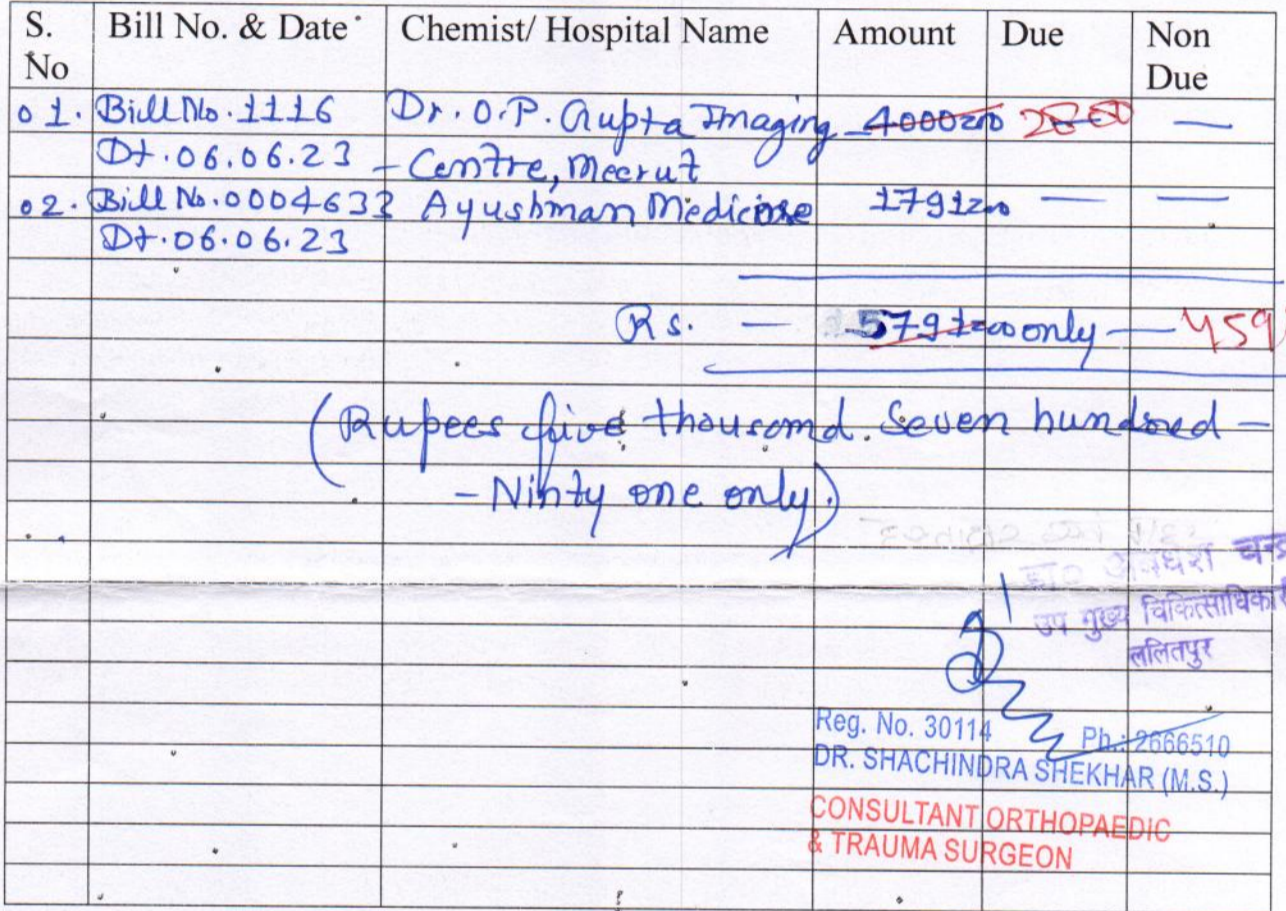 S. No Bill No. & Date Chemist/ Hospital Name Amount Due Non Due
01. Bill No. 1116 Dr. O.P. Gupta Imaging 4000=00 2800 —
Dt. 06.06.23 - Centre, Meerut
02. Bill No. 0004633 Ayushman Medicine 1791=00 — —
Dt. 06.06.23
Rs. — 5791=00 only — 459
(Rupees five thousand. Seven hundred -
- Ninty one only.)
अवधेश चन्द्र
उप मुख्य चिकित्साधिकारी
ललितपुर
Reg. No. 30114 Ph.: 2666510
DR. SHACHINDRA SHEKHAR (M.S.)
CONSULTANT ORTHOPAEDIC
& TRAUMA SURGEON